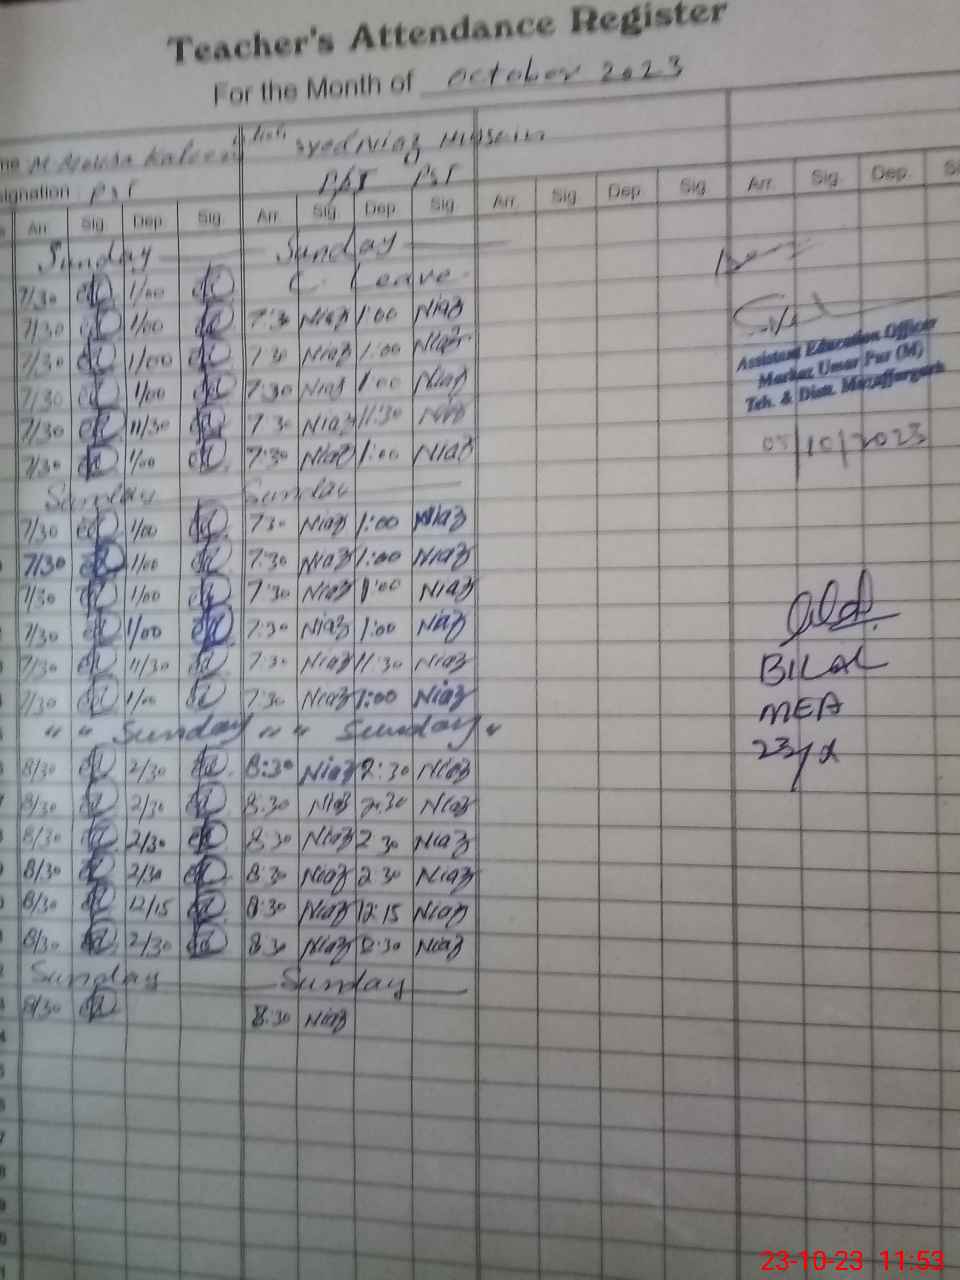 Teacher's Attendance Register
For the Month of October 2023
Syed Niaz Hussain
signation PST PST
Arr. Sig. Dep. Sig. Arr. Sig. Dep. Sig. Arr. Sig. Dep. Sig. Arr. Sig. Dep.
Sunday Sunday
7/30 1/00 C. Leave
7/30 1/00 7:30 Niaz 1:00 Niaz
7/30 1/00 7:30 Niaz 1:00 Niaz
7/30 1/00 7:30 Niaz 1:00 Niaz
7/30 11/30 7:30 Niaz 11:30 Niaz
7/30 1/00 7:30 Niaz 1:00 Niaz
Sunday Sunday
7/30 1/00 7:30 Niaz 1:00 Niaz
7/30 1/00 7:30 Niaz 1:00 Niaz
7/30 1/00 7:30 Niaz 1:00 Niaz
7/30 1/00 7:30 Niaz 1:00 Niaz
7/30 11/30 7:30 Niaz 11:30 Niaz
7/30 1/00 7:30 Niaz 1:00 Niaz
" " Sunday " " Sunday "
8/30 2/30 8:30 Niaz 2:30 Niaz
8/30 2/30 8:30 Niaz 2:30 Niaz
8/30 2/30 8:30 Niaz 2:30 Niaz
8/30 2/30 8:30 Niaz 2:30 Niaz
8/30 12/15 8:30 Niaz 12:15 Niaz
8/30 2/30 8:30 Niaz 2:30 Niaz
Sunday Sunday
8/30 8:30 Niaz
Assistant Education Officer
Markaz Umar Pur (M)
Teh. & Distt. Muzaffargarh
05/10/2023
BILAL
MEA
23-10-23 11:53